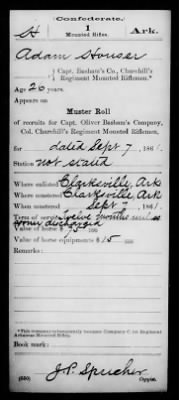 Confederate.
H 1 Ark.
Mounted Rifles.
Adam Houser
Capt. Basham's Co., Churchill's
Regiment Mounted Riflemen.
Age 26 years.
Appears on
Muster Roll
of recruits for Capt. Oliver Basham's Company,
Col. Churchill's Regiment Mounted Riflemen,
for dated Sept 7, 1861.
Station not stated
Where enlisted Clarksville, Ark
Where mustered Clarksville, Ark
When mustered Sept 1861.
Term of service twelve months unless
sooner discharged
Value of horse $
Value of horse equipments $ 15
Remarks:
*This company subsequently became Company C 1st Regiment
Arkansas Mounted Riflemen.
Book mark:
J.P. Sprucher
Copyist.